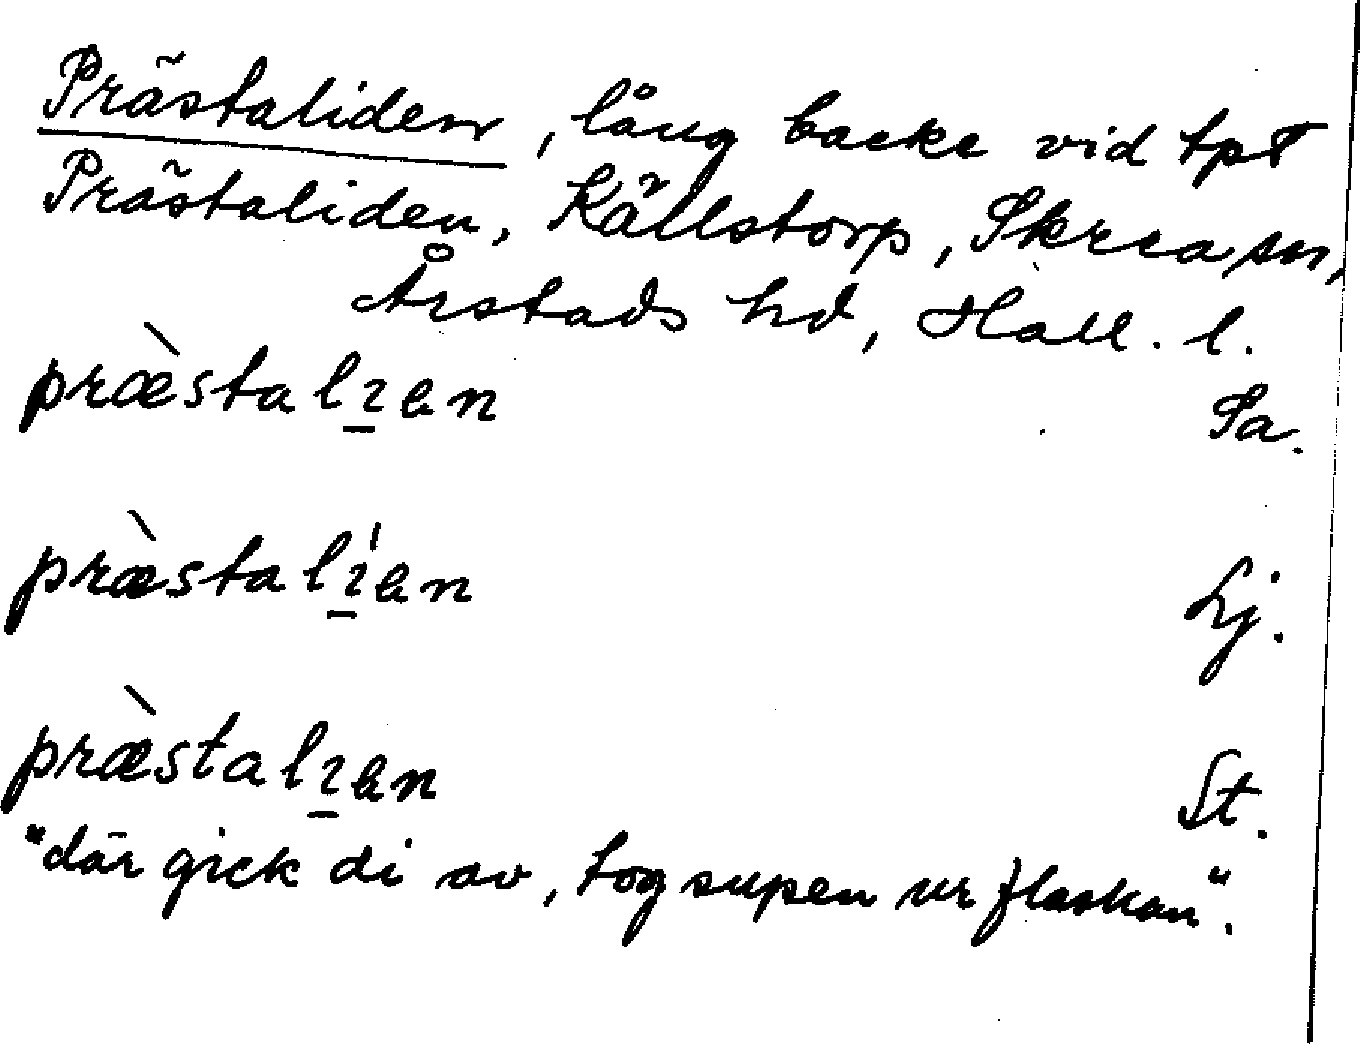 Prästaliden, lång backe vid tpt
Prästaliden, Källstorp, Skrea sn,
Årstads hd, Hall. l.
præ̀stalı̱ɐn Sa.
præ̀stalı̱́ɐn Lj.
præ̀stalı̱ɐn St.
"där gick di av, tog supen ur flaskan".